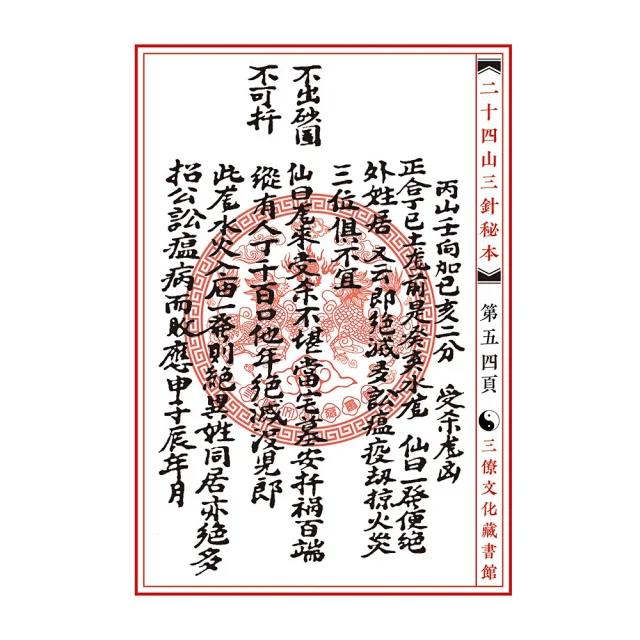 二十四山三針秘本
第五四頁
三僚文化藏書館
丙山壬向加巳亥二分 受杀龙凶
正合丁巳土龙前是癸亥水龙 仙曰一發便绝
外姓居 又云即绝滅多訟瘟疫劫掠火災
三位俱不宜
不出砂國
仙曰龙來受杀不堪當宅墓安扦禍百端
不可扦
縱有人丁十百口他年绝滅没兒郎
此龙水火入庙一發則絕異姓同居亦绝多
招公訟瘟病而敗應申子辰年月